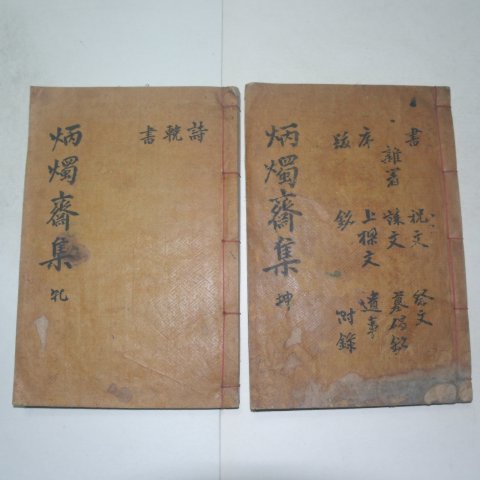 詩輓書
炳燭齋集
書 祝文 祭文
雜著 誄文 墓碣銘
序 上樑文 遺事
跋 銘 附錄
炳燭齋集 坤